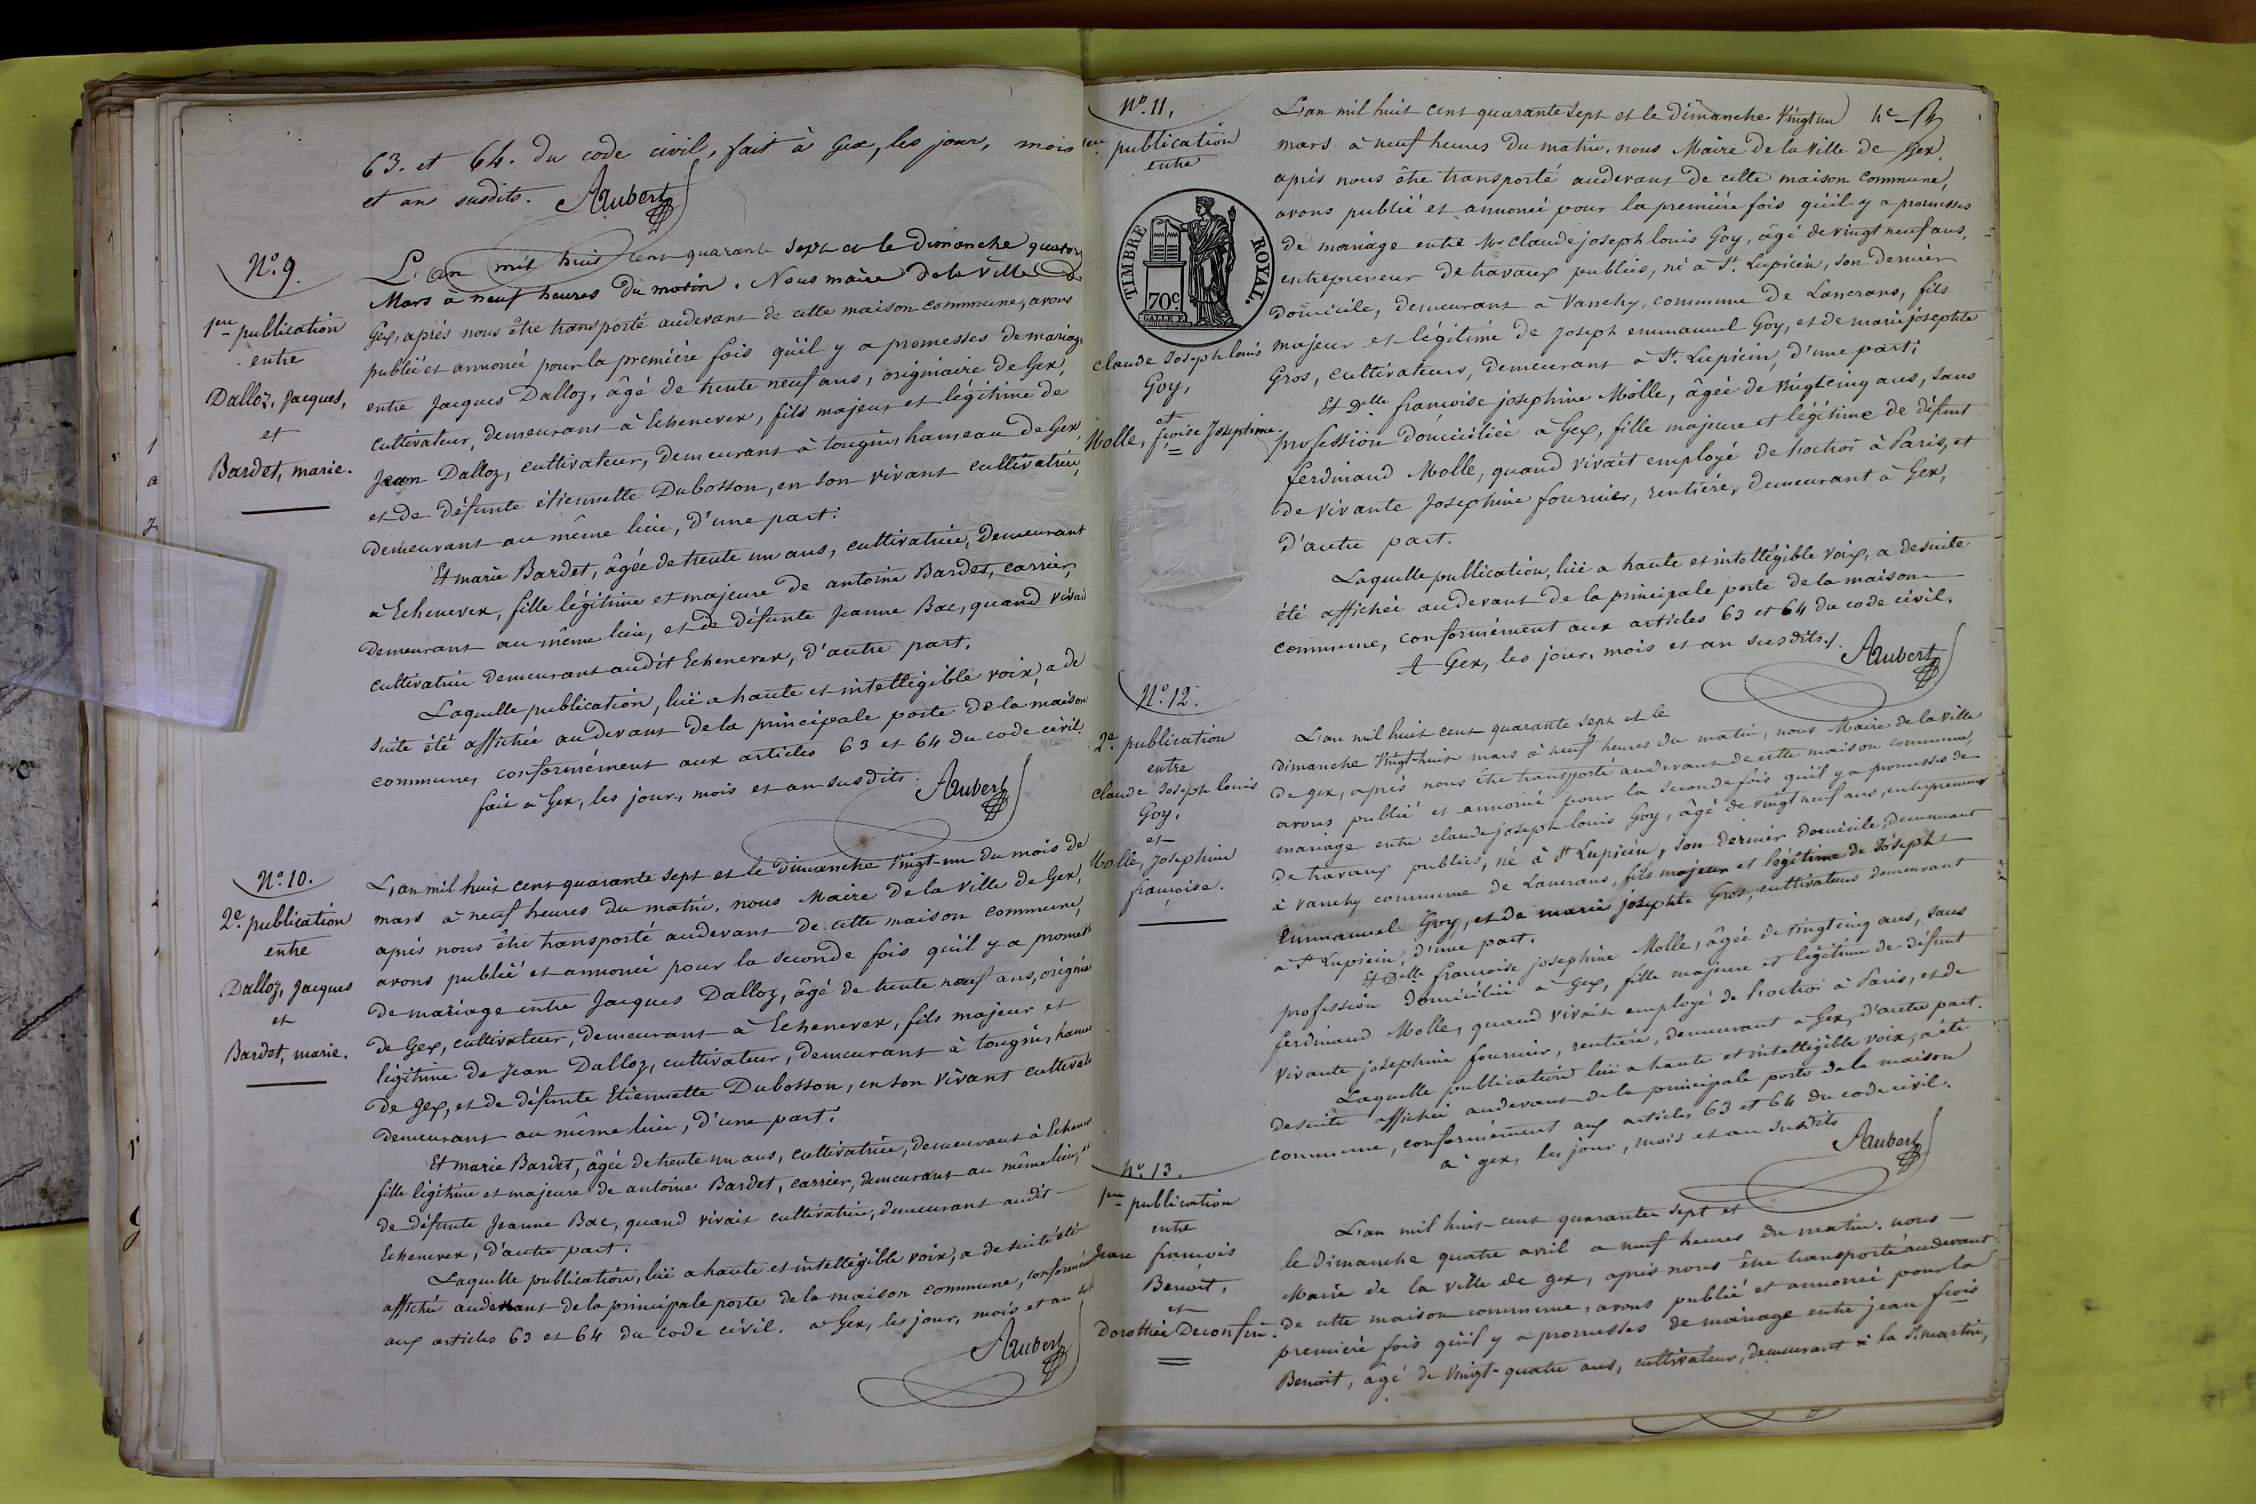 63. et 64. du code civil, fait à Gex, les jour, mois
et an susdits. Aubert
N.º 9.
1ere publication
entre
Dalloz, Jacques,
et
Bardet, marie.
L'an mil huit cent quarante sept et le Dimanche quatorze
Mars à neuf heures du matin. Nous maire de la Ville de
Gex, après nous être transporté audevant de cette maison commune, avons
publié et annoncé pour la première fois qu'il y a promesses de mariage
entre Jacques Dalloz, âgé de trente neuf ans, originaire de Gex,
cultivateur, demeurant à Echenevex, fils majeur et légitime de
Jean Dalloz, cultivateur, demeurant à tougin, hameau de Gex,
et de défunte étiennette Dubosson, en son vivant cultivatrice,
demeurant au même lieu, d'une part:
Et marie Bardet, âgée de trente un ans, cultivatrice, demeurant
à Echenevex, fille légitime et majeure de antoine Bardet, carrier,
demeurant au même lieu, et de défunte Jeanne Bac, quand vivait
cultivatrice demeurant audit Echenevex, d'autre part.
Laquelle publication, lüe a haute et intelligible voix, a de
suite été affichée audevant de la principale porte de la maison
commune, conformément aux articles 63 et 64 du code civil.
fait à Gex, les jour, mois et an susdits. Aubert
N.º 10.
2.e publication
entre
Dalloz, Jacques
et
Bardet, marie.
L'an mil huit cent quarante sept et le Dimanche vingt-un du mois de
mars à neuf heures du matin, nous Maire de la ville de Gex,
après nous être transporté audevant de cette maison commune,
avons publié et annoncé pour la seconde fois qu'il y a promess
de mariage entre Jacques Dalloz, âgé de trente neuf ans, origina
de Gex, cultivateur, demeurant à Echenevex, fils majeur et
légitime de Jean Dalloz, cultivateur, demeurant à tougin, hame
de Gex, et de défunte Etiennette Dubosson, en son vivant cultivat
demeurant au même lieu, d'une part:
Et marie Bardet, âgée de trente un ans, cultivatrice, demeurant à Echene
fille légitime et majeure de antoine Bardet, carrier, demeurant au même lieu, et
de défunte Jeanne Bac, quand vivait cultivatrice, demeurant audit
Echenevex, d'autre part.
Laquelle publication, lüe a haute et intelligible voix, a de suite été
affichée audevant de la principale porte de la maison commune, conformém
aux articles 63 et 64 du code civil. à Gex, les jour, mois et an
Aubert
N.º 11,
1ere publication
entre
TIMBRE ROYAL.
70c
claude Joseph louis
Goy,
et
Molle, froise Josephine.
L'an mil huit cent quarante sept et le dimanche Vingt un
mars à neuf heures du matin, nous Maire de la Ville de Gex,
après nous être transporté audevant de cette maison commune,
avons publié et annoncé pour la première fois qu'il y a promesses
de mariage entre Mr claude joseph louis Goy, âgé de vingt neuf ans,
entrepreneur de travaux publics, né à St. Lupicin, son dernier
domicile, demeurant à Vanchy, commune de Lancrans, fils
majeur et légitime de Joseph emmanuel Goy, et de marie josephte
Gros, cultivateurs, demeurant à St. Lupicin, d'une part;
Et Delle françoise josephine Molle, âgée de vingt cinq ans, sans
profession domiciliée à Gex, fille majeure et légitime de défunt
ferdinand Molle, quand vivait employé de l'octroi à Paris, et
de vivante Josephine fournier, rentière, demeurant à Gex,
d'autre part.
Laquelle publication, lüe a haute et intelligible voix, a de suite
été affichée audevant de la principale porte de la maison
commune, conformément aux articles 63 et 64 du code civil.
A Gex, les jour, mois et an susdits./. Aubert
N.º 12.
2.e publication
entre
claude Joseph louis
Goy,
et
Molle, Josephine
françoise.
L'an mil huit cent quarante sept et le
dimanche Vingt-huit mars à neuf heures du matin, nous Maire de la ville
de gex, après nous être transporté audevant de cette maison commune,
avons publié et annoncé pour la seconde fois qu'il y a promesses de
mariage entre claude joseph louis Goy, âgé de vingt neuf ans, entrepreneur
de travaux publics, né à St Lupicin, son dernier domicile, demeurant
à vanchy commune de Lancrans, fils majeur et légitime de Joseph
Emmanuel Goy, et de marie josephte Gros, cultivateurs demeurant
a St Lupicin, d'une part.
Et Delle françoise josephine Molle, âgée de vingt cinq ans, sans
profession domiciliée à Gex, fille majeure et légitime de défunt
ferdinand Molle, quand vivait employé de l'octroi à Paris, et de
vivante josephine fournier, rentière, demeurant à Gex, d'autre part.
Laquelle publication lüe a haute et intelligible voix, a été
desuite affichée audevant de la principale porte de la maison
commune, conformément aux articles 63 et 64 du code civil.
à gex, les jour, mois et an susdits Aubert
N.º 13.
1ere publication
entre
Jean françois
Benoit,
et
Dorothée Deconfin.
L'an mil huit-cent quarante sept et
le dimanche quatre avril a neuf heures du matin, nous
Maire de la ville de gex, après nous être transporté audevant
de cette maison commune, avons publié et annoncé pour la
première fois qu'il y a promesses de mariage entre jean frois
Benoit, âgé de vingt-quatre ans, cultivateur, demeurant à la St martin,